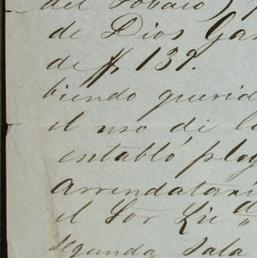 del Tobaco
de Dios Gar
de $ 139.
biendo querid
el uso de la
entabló pleg
Arrendatari
el Sor Lic d
segunda Sala